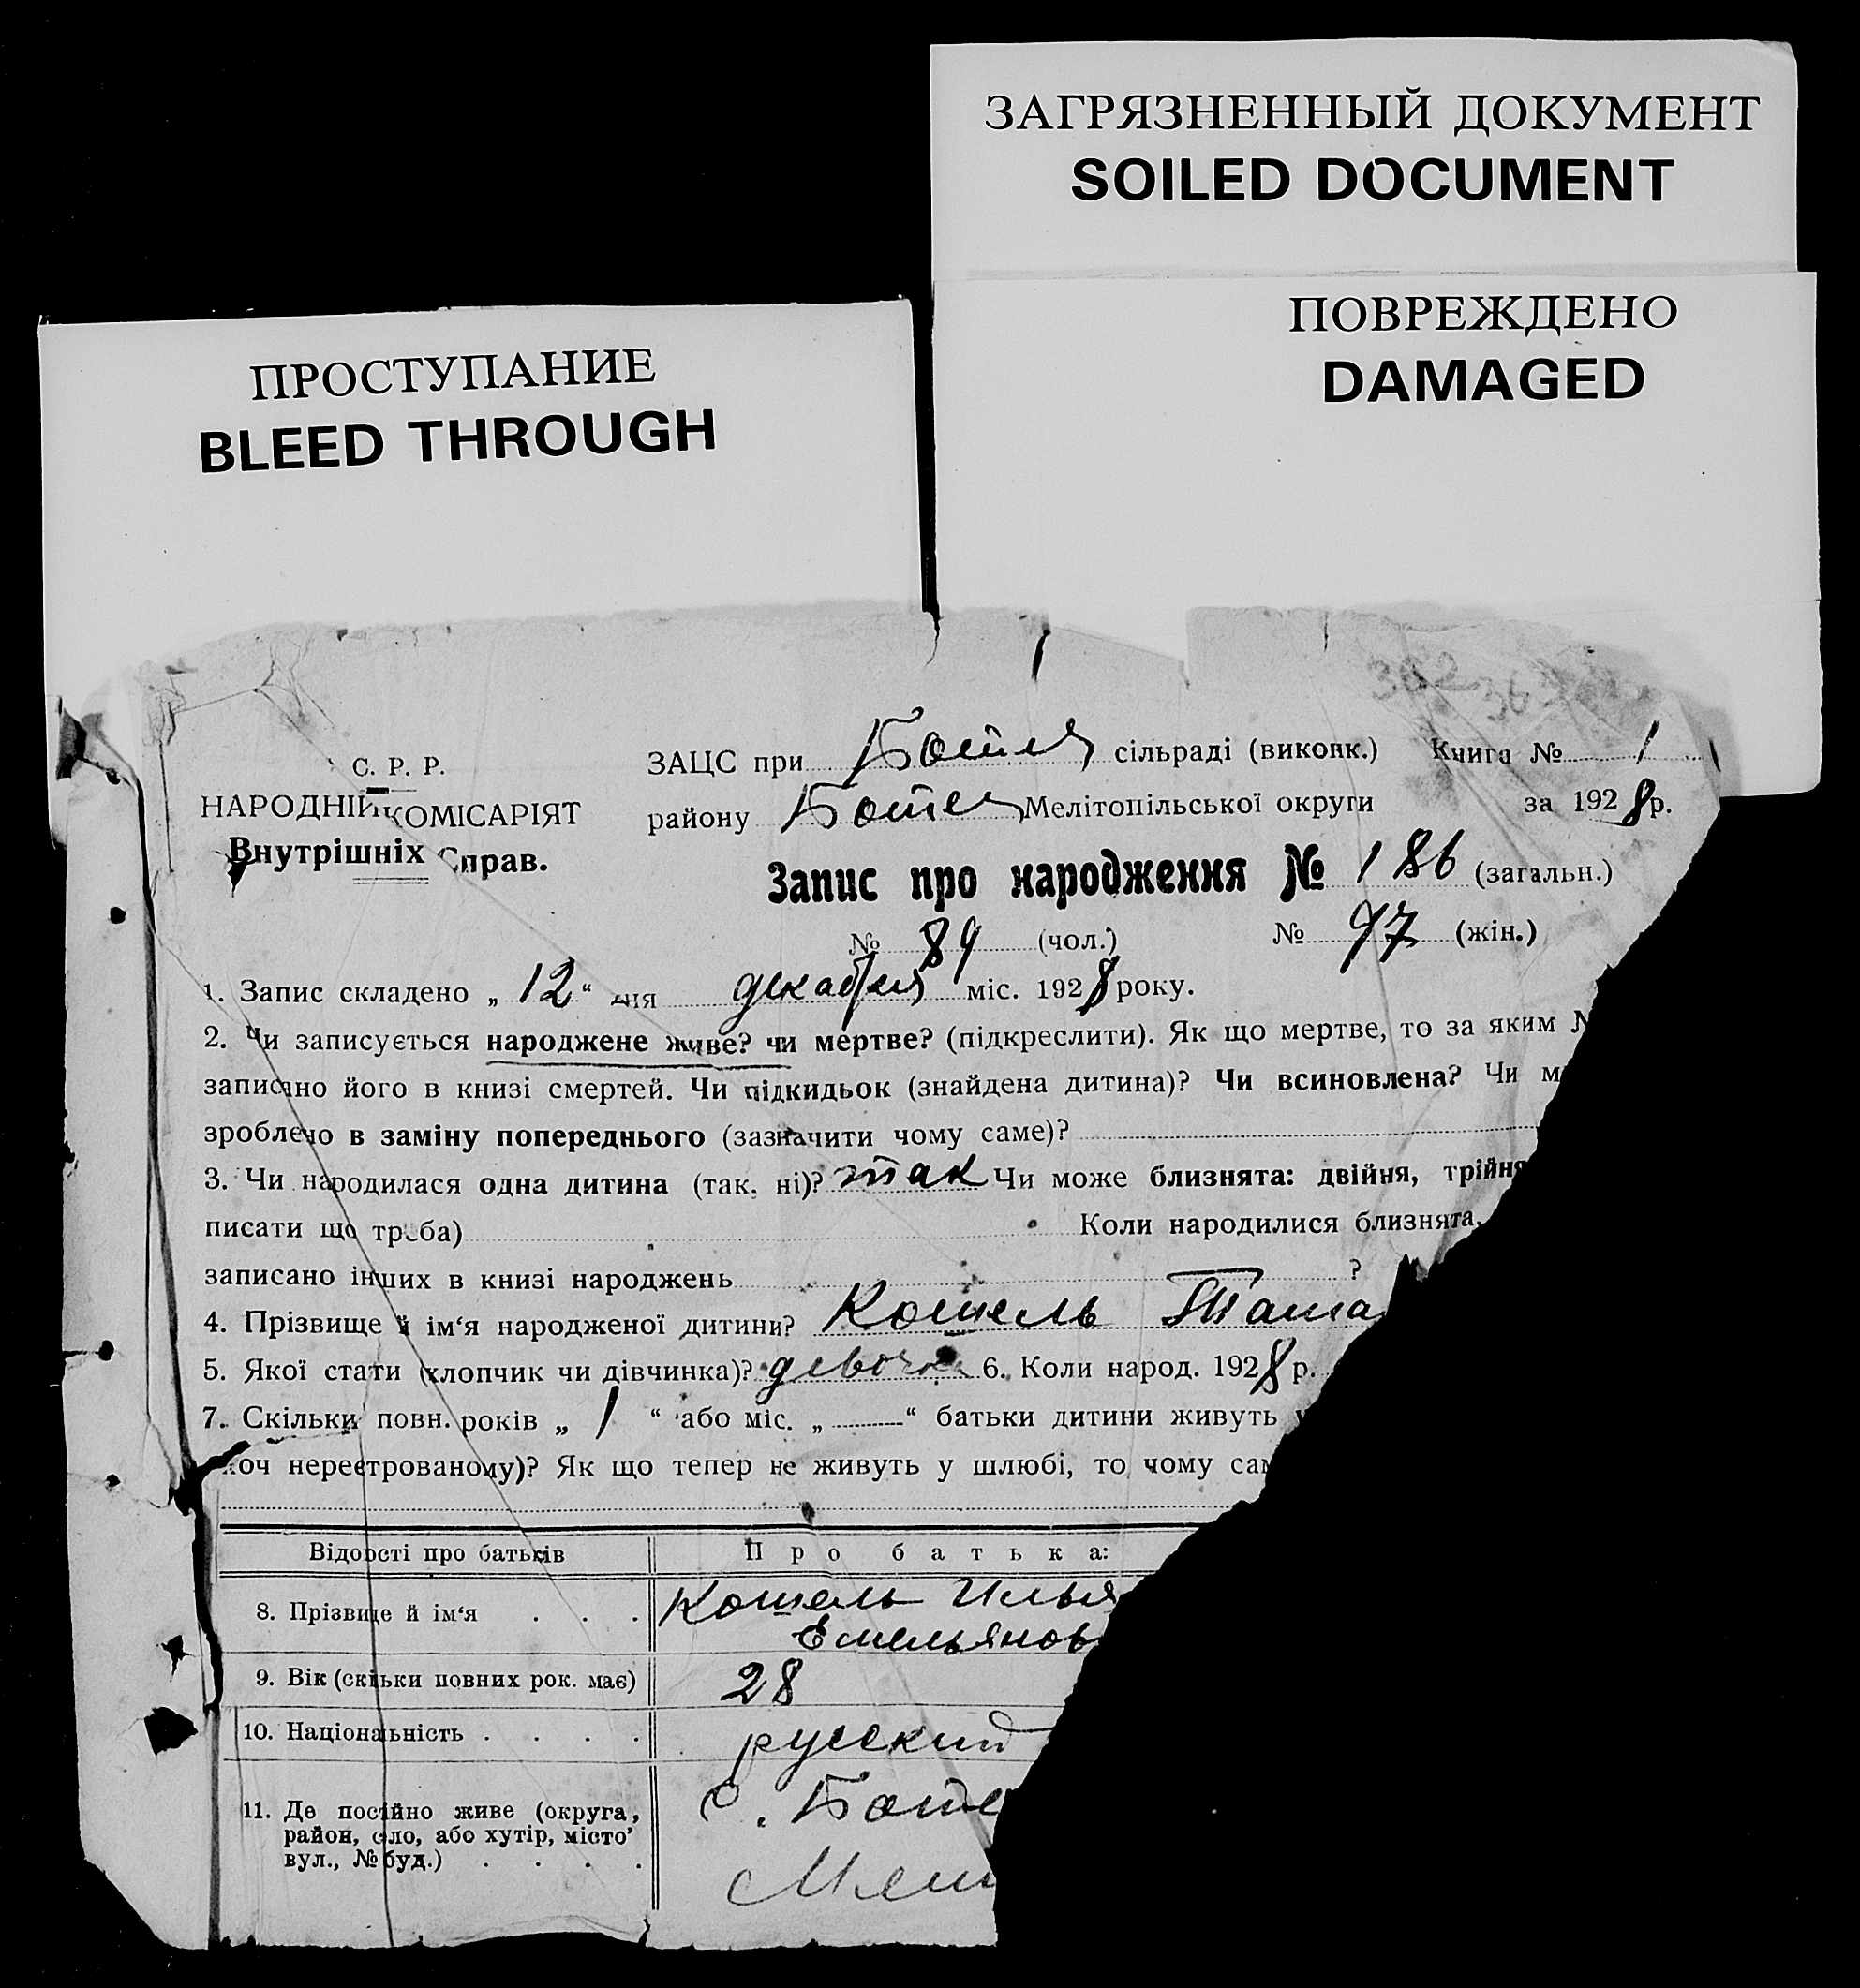 ЗАГРЯЗНЕННЫЙ ДОКУМЕНТ
SOILED DOCUMENT
ПОВРЕЖДЕНО
DAMAGED
ПРОСТУПАНИЕ
BLEED THROUGH
С. Р. Р.
НАРОДНІЙ КОМІСАРІЯТ
Внутрішніх Справ.
ЗАЦС при сільраді (виконк.) Книга № 1
району Мелітопільської округи за 1928 р.
Запис про народження № 186 (загальн.)
№ 89 (чол.) № 97 (жін.)
1. Запис складено „ 12 “ дня декабря міс. 1928 року.
2. Чи записується народжене живе? чи мертве? (підкреслити). Як що мертве, то за яким №
записано його в книзі смертей. Чи підкидьок (знайдена дитина)? Чи всиновлена? Чи
зроблено в заміну попереднього (зазначити чому саме)?
3. Чи народилася одна дитина (так, ні)? так Чи може близнята: двійня, трійня
писати що треба) Коли народилися близнята,
записано інших в книзі народжень ?
4. Прізвище й ім‘я народженої дитини? Кошель Тата
5. Якої стати (хлопчик чи дівчинка)? девочка 6. Коли народ. 1928 р.
7. Скільки повн. років „ 1 “ або міс. „ — “ батьки дитини живуть у
хоч нереєтрованому)? Як що тепер не живуть у шлюбі, то чому сам
Відомості про батьків Про батька:
8. Прізвище й ім‘я . . . Кошель Илья
Емельянов
9. Вік (скільки повних рок. має) 28
10. Національність . . . . русский
11. Де постійно живе (округа,
район, село, або хутір, місто,
вул., № буд.) . . . .